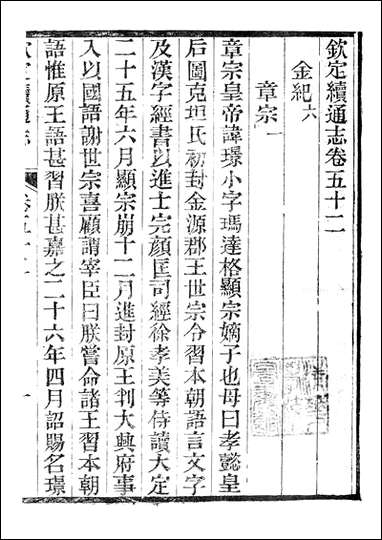 欽定續通志卷五十二
金紀六
章宗一
章宗皇帝諱璟小字瑪達格顯宗嫡子也母曰孝懿皇
后圖克坦氏初封金源郡王世宗令習本朝語言文字
及漢字經書以進士完顏匡司經徐孝美等侍讀大定
二十五年六月顯宗崩十二月進封原王判大興府事
入以國語謝世宗喜顧謂宰臣曰朕嘗命諸王習本朝
語惟原王語甚習朕甚嘉之二十六年四月詔賜名璟